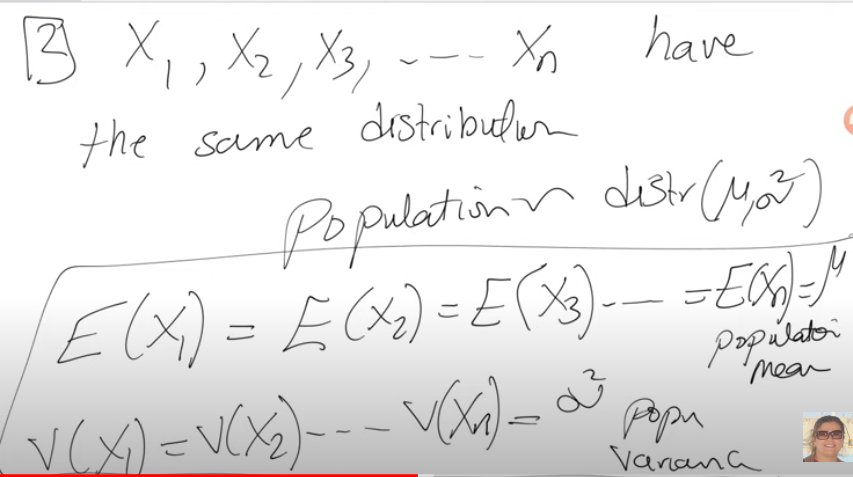 2 X₁, X₂, X₃, ---- Xₙ have
the same distribution
Population ~ distr(μ, σ²)
E(X₁) = E(X₂) = E(X₃) --- = E(Xₙ) = μ
population
mean
V(X₁) = V(X₂) --- V(Xₙ) = σ² popu
variance